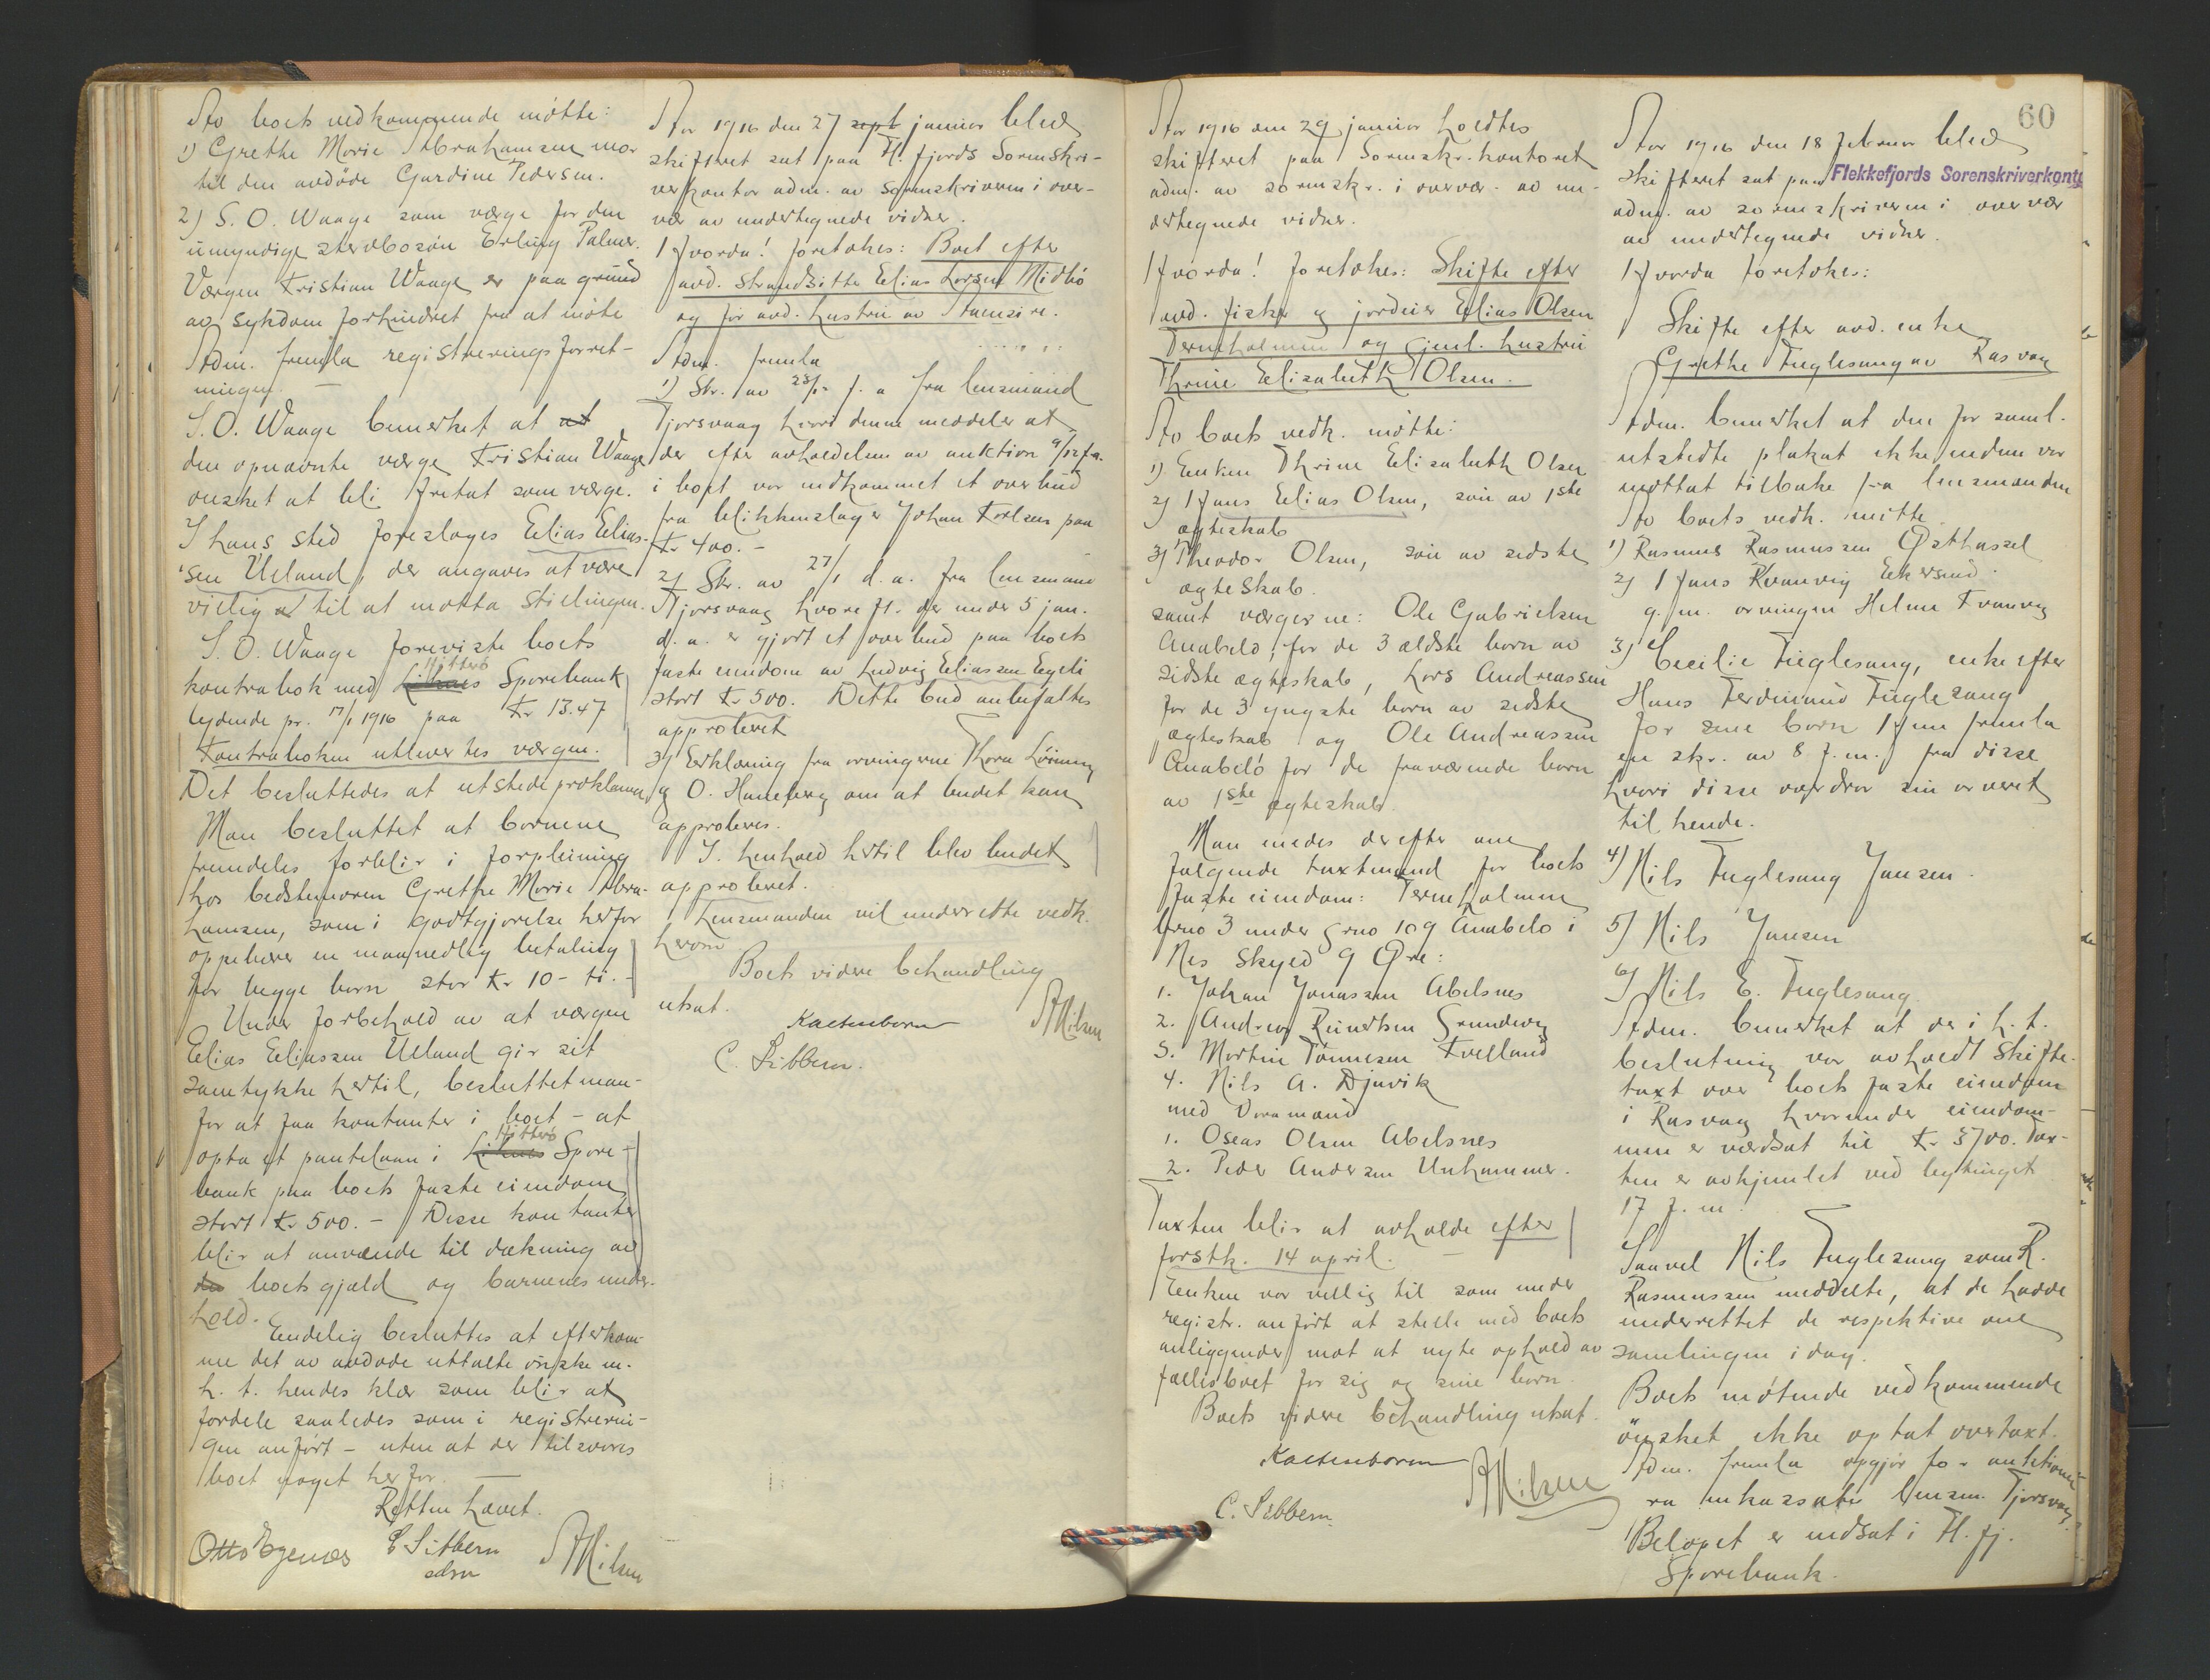 For boets vedkommende møtte:
1) Grethe Marie Abrahamsen mor
til den avdøde Gurdine Pedersen.
2) S. O. Waage som værge for den
umyndige stervbosøn Erling Palmer.
Værgen Kristian Waage er paa grund
av sykdom forhindret fra at møte
Adm. fremla registreringsforret-
ningen. —
S. O. Waage bemerket at
den opnævnte værge Kristian Waage
ønsket at bli fritat som værge.
I hans sted foreslages Elias Elias-
sen Ueland, der angaves at være
villig til at motta stillingen.
S. O. Waage foreviste boets
kontrabok med Hitterø Sparebank
lydende pr. 17/1 1916 paa Kr 13.47
Kontraboken utlevertes værgen.
Det besluttedes at utstede proklama
Man besluttet at barnene
fremdeles forblir i forpleining
hos bedstemoren Grethe Marie Abra-
hamsen, som i godtgjørelse herfor
oppebærer en maanedlig betaling
for begge barn stor Kr 10 - ti. -
Under forbehold av at værgen
Elias Eliassen Ueland gir sit
samtykke hertil, besluttet man -
for at faa kontanter i boet - at
opta et pantelaan i Hitterø Spare-
bank paa boets faste eiendom
stort Kr 500. - Disse kontanter
blir at anvende til dækning av
boets gjæld og barnenes under-
hold.
Endelig besluttes at efterkom-
me det av avdøde uttalte ønske m.
h. t. hendes klær som blir at
fordele saaledes som i registrerin-
gen anført - uten at der tilsvares
boet noget herfor. —
Retten hævet.
Otto Egenæs C Sibbern AMilsen
Aar 1916 den 27 sept januar blev
skifteret sat paa Fl. fjords Sorenskri-
verkontor adm. av sorenskriveren i over-
vær av undertegnede vidner.
Hvorda! foretokes: Boet efter
avd. strandsitter Elias Larsen Midbø
og før avd. hustru av
Adm. fremla
1) Skr. av 28/12 f. a fra lensmand
Tjorsvaag hvori denne meddeler at
der efter avholdelsen av auktion 9/12 f.a.
i boet var indkommet et overbud
fra blikkenslager Johan Karlsen paa
Kr 400. -
2) Skr. av 27/1 d. a. fra lensmand
Tjorsvaag hvoreft. der under 5 jan.
d. a. er gjort et overbud paa boets
faste eiendom av Ludvig Eliassen Egeli
stort Kr 500. Dette bud anbefaltes
approberet
3) Erklæring fra arvingerne Thora Løining
og O. Haneberg om at budet kan
approberes.
I. henhold hertil blev budet
approberet.
Lensmanden vil underrette vedk.
herom
Boets videre behandling
utsat.
Kaltenborn AMilsen
C. Sibbern.
60
Aar 1916 den 29 januar holdtes
skifteret paa Sorenskr. kontoret
adm. av sorenskr. i overvær. av un-
dertegnede vidner.
Hvorda! foretokes: Skifte efter
avd. fisker og jordeier Elias Olsen
Terneholmen og gjenl. hustru
Thrine Elisabeth Olsen.
For boets vedk. møtte:
1) Enken Thrine Elisabeth Olsen
2) Hans Elias Olsen, søn av 1ste
egteskab
3) Theodor Olsen, søn av sidste
egteskab.
samt værgerne: Ole Gabrielsen
Anabelø, for de 3 ældste barn av
sidste egteskab, Lars Andreassen
for de 3 yngste barn av sidste
egteskab og Ole Andreassen
Anabelø for de fraværende barn
av 1ste egteskab.
Man enedes derefter om
følgende takstmænd for boets
faste eiendom: Terneholmen
brno 3 under grno 109 Anabelø i
Nes skyld 9 Øre:
1. Johan Jonassen Abelsnes
2. Andreas Reiertsen Grundevig
3. Martin Tønnesen Kvelland
4. Nils A. Djuvik
med Varamænd
1. Oseas Olsen Abelsnes
2. Peder Andersen Unhammer.
Taxten blir at avholde efter
førstk. 14 april. —
Enken var villig til som under
registr. anført at stelle med boets
anliggender mot at nyte ophold av
fællisboet for sig og sine barn.
Boets videre behandling utsat.
Kaltenborn AMilsen
C. Sibbern
Aar 1916 den 18 februar blev
skifteret sat paa Flekkefjords Sorenskriverkontor
adm. av sorenskriveren i overvær
av undertegnede vidner.
Hvorda foretokes:
Skifte efter avd. enke
Grethe Fuglesang av Rasvag
Adm. bemerket at den for saml.
utstedte plakat ikke endnu var
mottat tilbake fra lensmanden
For boets vedk. møtte
1) Rasmus Rasmussen Østhassel
2) Hans Kvanvig Ekersund
g. m. arvingen Helene Kvanvig
3) Cecilie Fuglesang, enke efter
Hans Ferdinand Fuglesang
for sine barn Hun fremla
en skr. av 8 f. m. fra disse
hvori disse overdrar sin arveret
til hende.
4) Nils Fuglesang Jansen.
5) Nils Jansen
6) Nils E. Fuglesang.
Adm. bemerket at der i h. t.
beslutning var avholdt skifte-
taxt over boets faste eiendom
i Rasvag hvorunder eiendom-
men er værdsat til Kr 3700. Tax-
ten er avhjemlet ved bytinget
17 f. m.
Saavel Nils Fuglesang som R.
Rasmussen meddelte, at de hadde
underrettet de respektive om
samlingen idag.
Boets møtende vedkommende
ønsket ikke optat overtaxt.
Adm. fremla opgjør for auktionen
ra inkassator lensm. Tjorsvaag.
Beløpet er indsat i Fl. fj.
Sparebank.